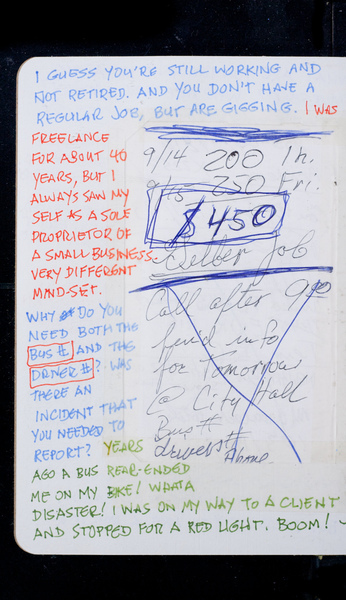 I GUESS YOU'RE STILL WORKING AND
NOT RETIRED. AND YOU DON'T HAVE A
REGULAR JOB, BUT ARE GIGGING. I WAS
FREELANCE
FOR ABOUT 40
YEARS, BUT I
ALWAYS SAW MY
SELF AS A SOLE
PROPRIETOR OF
A SMALL BUSINESS.
VERY DIFFERENT
MIND-SET.
WHY DO YOU
NEED BOTH THE
BUS # AND THE
DRIVER #? WAS
THERE AN
INCIDENT THAT
YOU NEEDED TO
REPORT? YEARS
AGO A BUS REAR-ENDED
ME ON MY BIKE! WHAT A
DISASTER! I WAS ON MY WAY TO A CLIENT
AND STOPPED FOR A RED LIGHT. BOOM!
9/14 200 Th.
9/15 250 Fri.
$450
Job
Call after 9
find info
for Tomorrow
@ City Hall
Bus #
drivers #
Phone